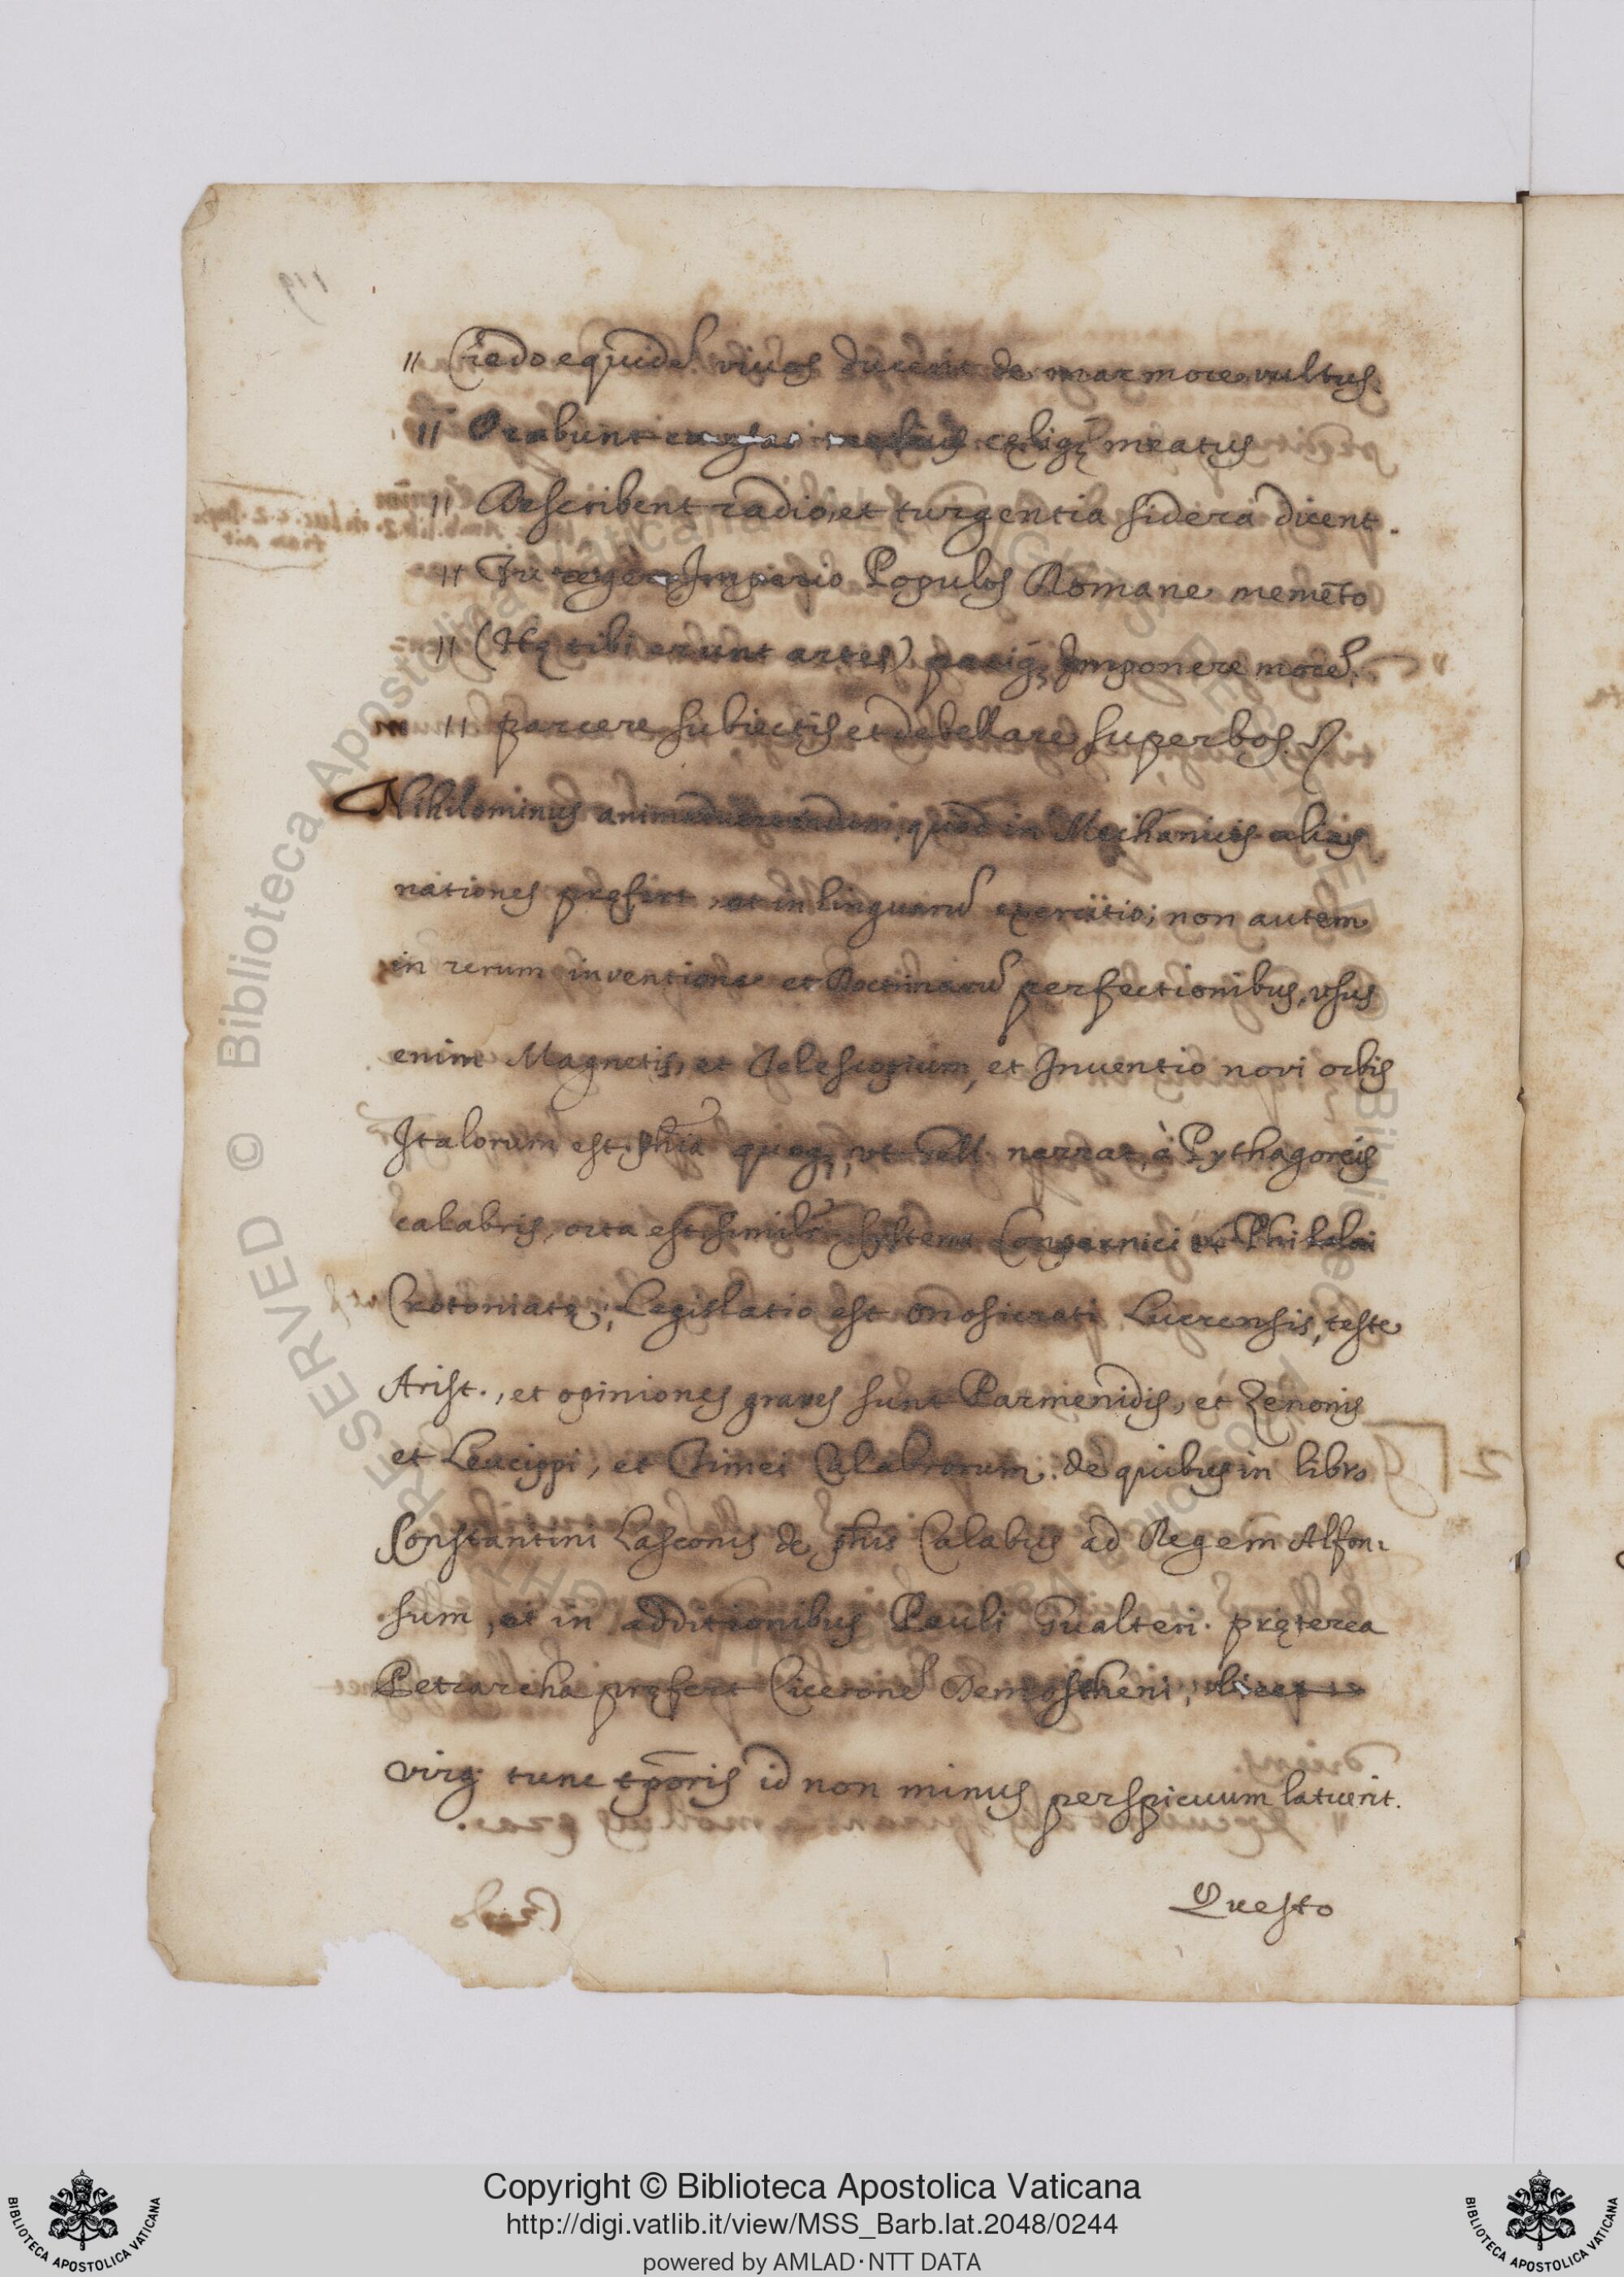 " Credo equidē vivos ducent de marmore vultus.
" Orabunt causas melius cęliq; meatus
" Describent radio, et turgentia sidera dicent.
" Tu regere Imperio Populos Romane memēto
" (Hę tibi erunt artes) paciq; Imponere morē,
" parcere subiectis et debellare superbos.
Nihilominus animaduertendum, quod in Mechanicis alias
nationes pręfert, et in linguarū exercitio; non autem
in rerum inventione et Doctrinarū perfectionibus, usus
enim Magnetis, et Telescopium, et Inventio novi orbis
Italorum est. phīa quoq;, ut narrat, à Pythagoreis
calabris, orta est. similr̄ systema Copernici et Philolai
Crotoniatę; Legislatio est Onosicrati Lucrensis, teste
Arist., et opiniones graves sunt Parmenidis, et Zenonis
et Leucippi, et Timei Calabrorum. de quibus in libro
Constantini Lasconis de phīs Calabris ad Regem Alfon:
sum, et in additionibus Pauli Gualteri. pręterea
Petrarcha pręfert Ciceronē Demostheni, licet
virg. tunc tp̄oris id non minus perspicuum latuerit.
Questo
Copyright © Biblioteca Apostolica Vaticana
http://digi.vatlib.it/view/MSS_Barb.lat.2048/0244
powered by AMLAD·NTT DATA
BIBLIOTECA APOSTOLICA VATICANA
BIBLIOTECA APOSTOLICA VATICANA